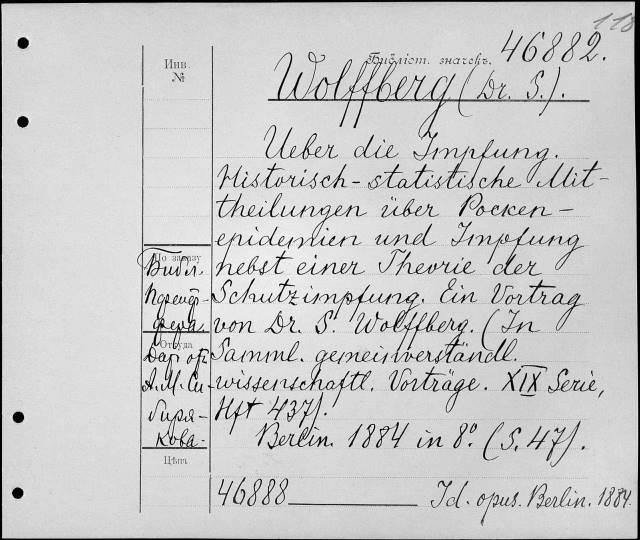 118
Инв. №
Библіот. значекъ.
46882.
Wolffberg (Dr. S.).
Ueber die Impfung.
Historisch-statistische Mit-
theilungen über Pocken-
epidemien und Impfung
nebst einer Theorie der
Schutzimpfung. Ein Vortrag
von Dr. S. Wolffberg. (In
Samml. gemeinverständl.
wissenschaftl. Vorträge. XIX Serie,
Hft 437).
Berlin. 1884 in 8°. (S. 47).
46888 Id. opus. Berlin. 1884.
По заказу
Библ.
Пфейф-
фера.
Откуда
Дар от
А. М. Си-
биря-
кова.
Цѣна